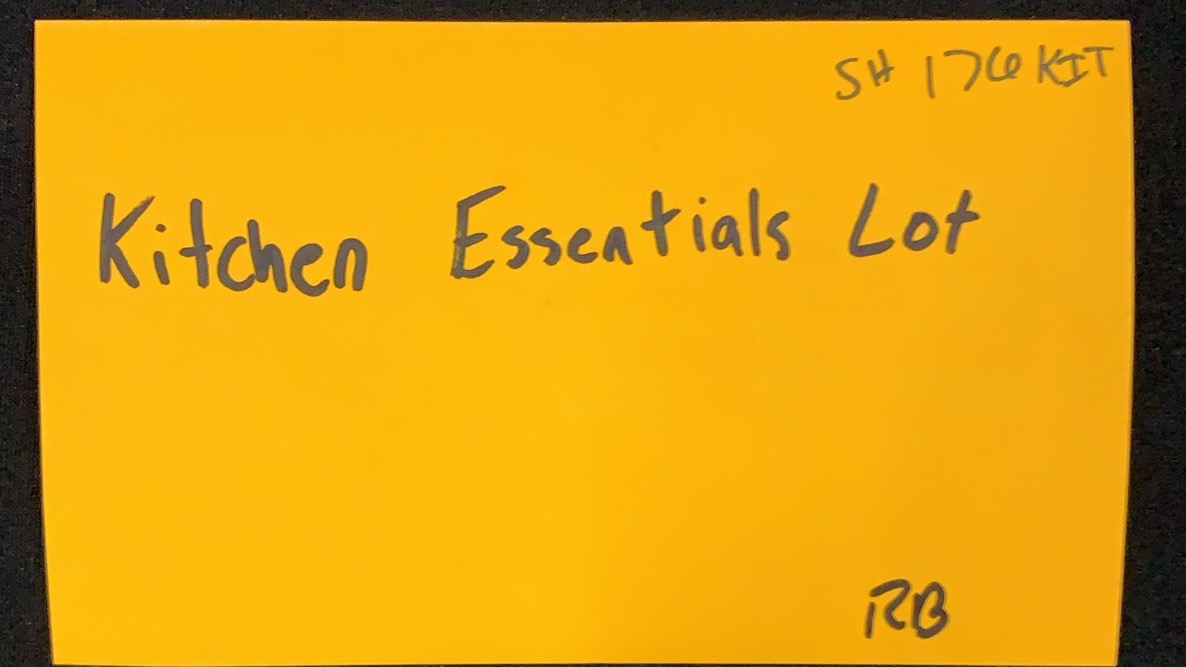 SH 176 KIT
Kitchen Essentials Lot
RB